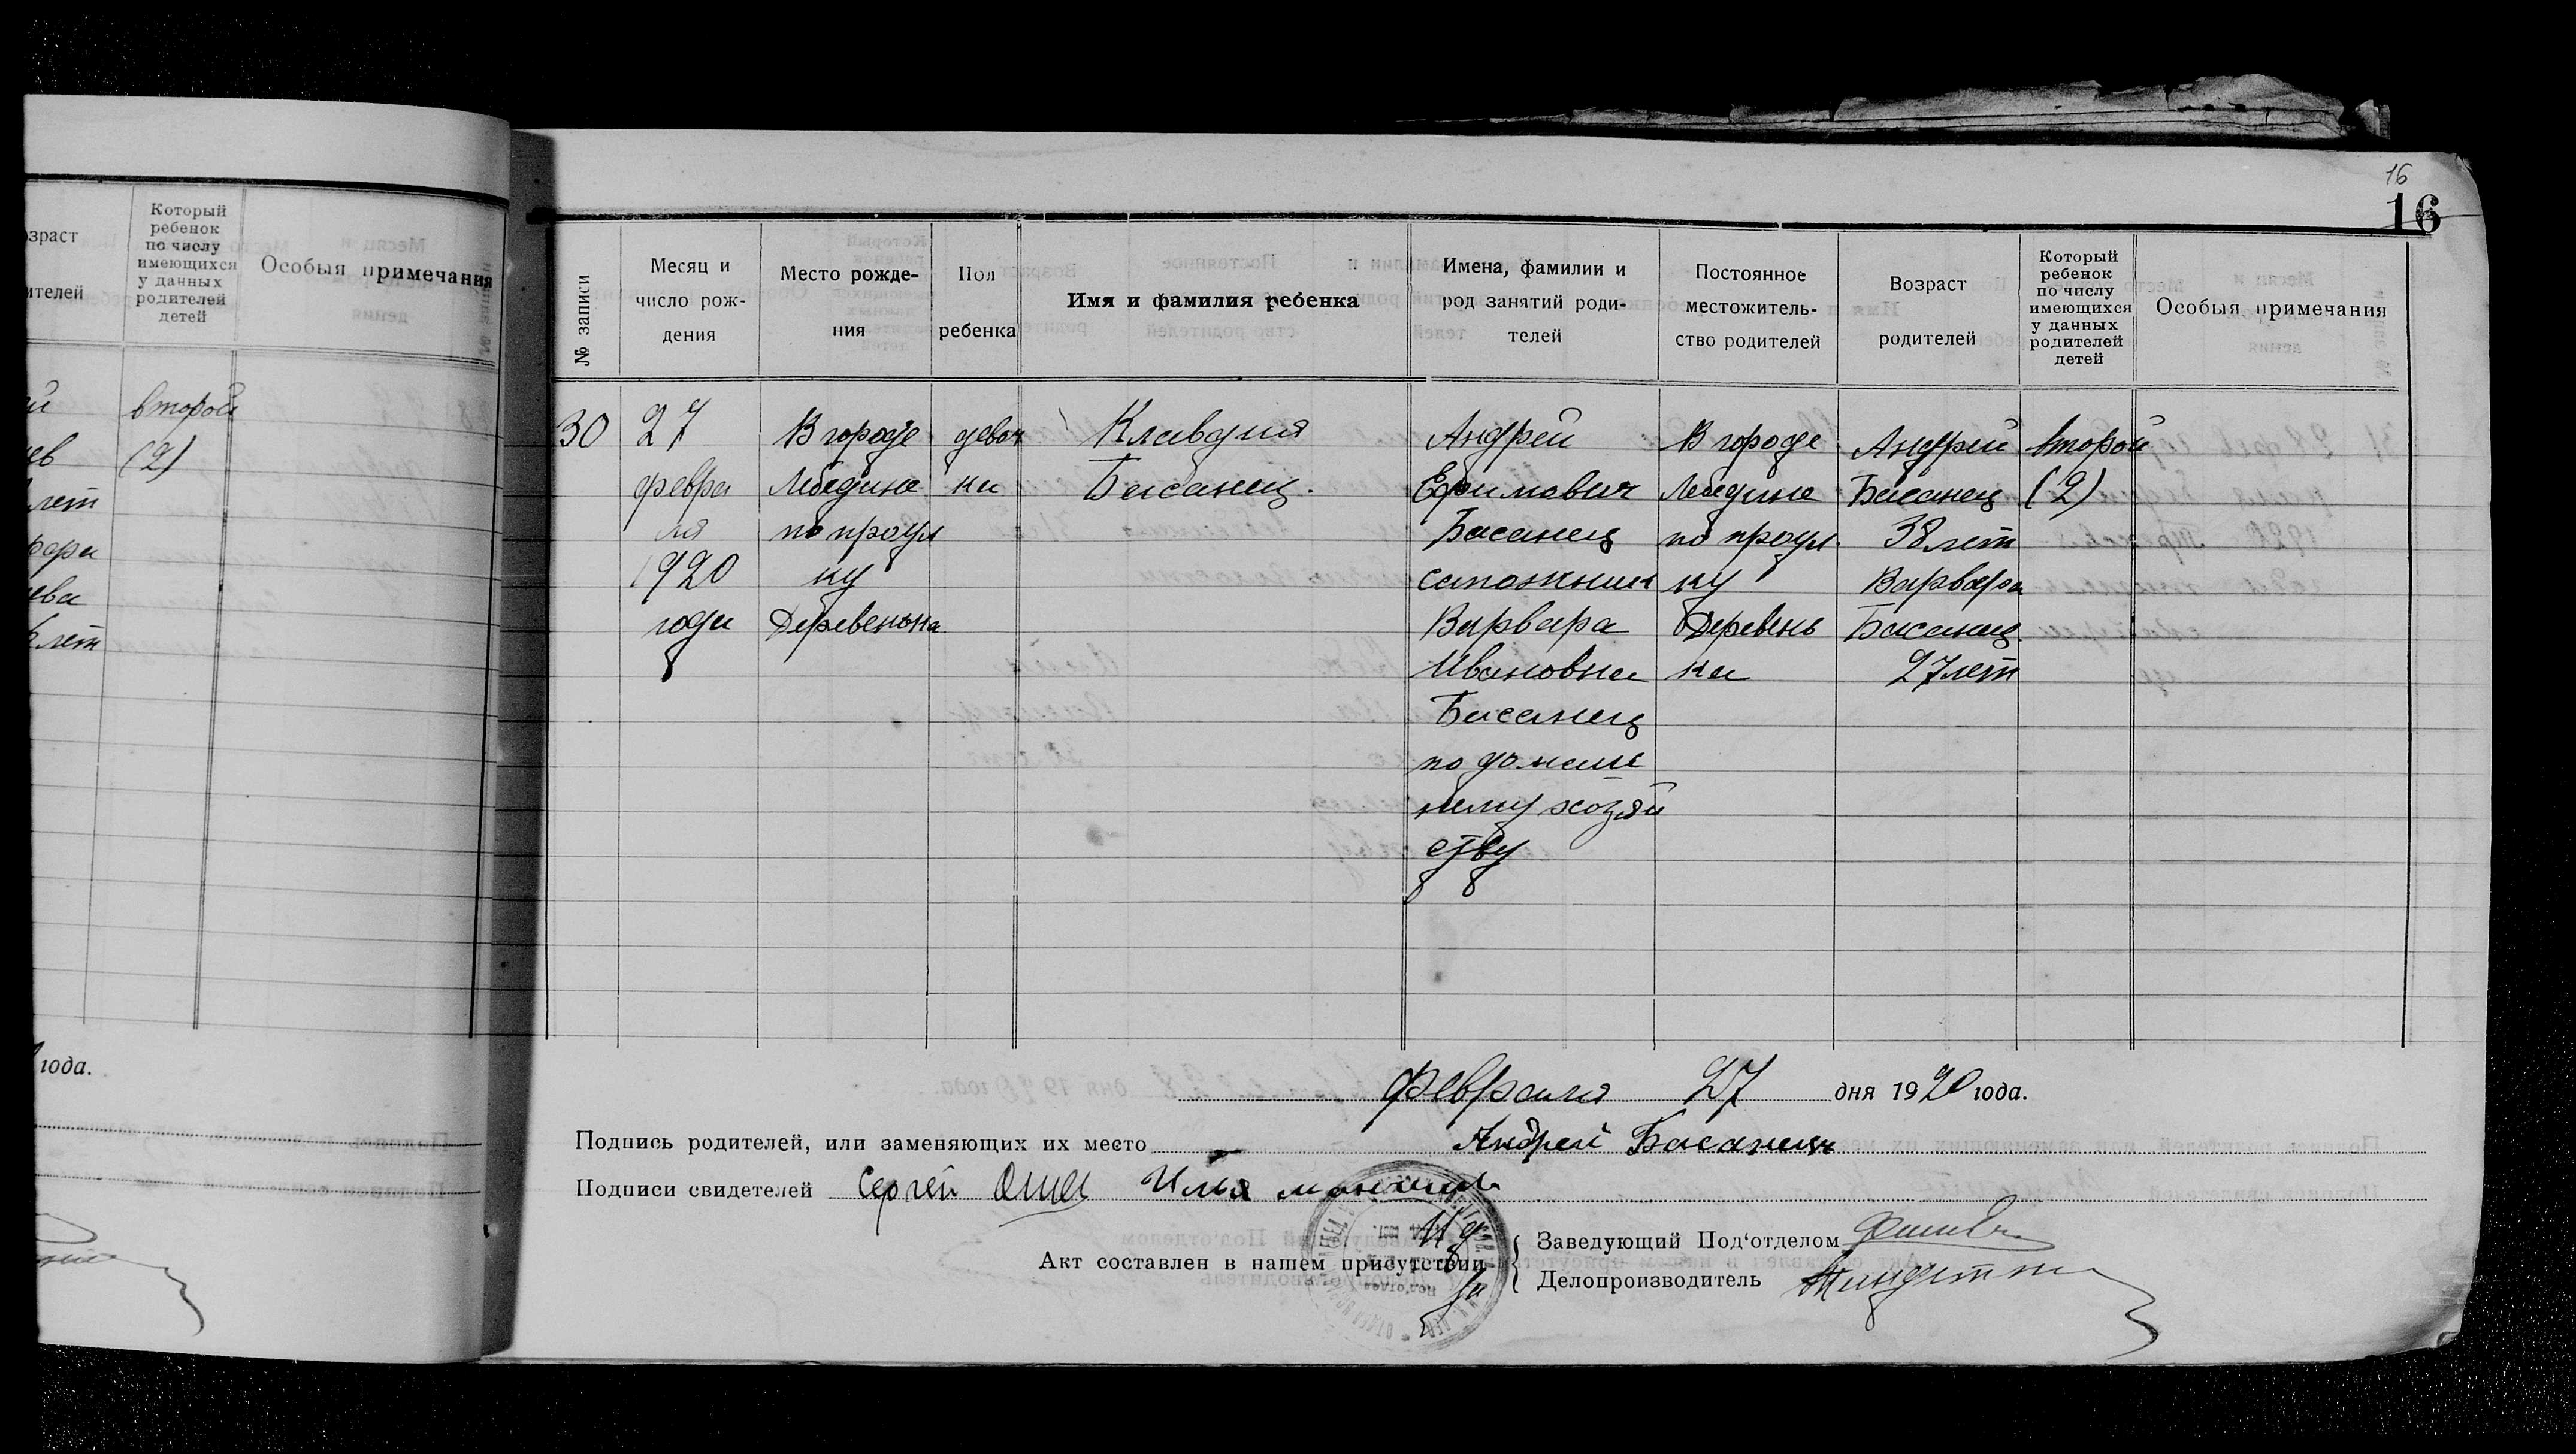 зраст
ителей
Который
ребенок
по числу
имеющихся
у данных
родителей
детей
Особыя примечания
второй
(2)
лет
лет
года.
16
16
№ записи
Месяц и
число рож-
дения
Место рожде-
ния
Пол
ребенка
Имя и фамилия ребенка
Имена, фамилии и
род занятий роди-
телей
Постоянное
местожитель-
ство родителей
Возраст
родителей
Который
ребенок
по числу
имеющихся
у данных
родителей
детей
Особыя примечания
30
27
февра
ля
1920
года
В городе
Лебедине
по проул
ку
Деревенька
девоч
ка
Клавдия
Басанец.
Андрей
Ефимович
Басанец
сапожник
Варвара
Ивановна
Басанец
по домаш
нему хозяй
ству
В городе
Лебедине
по проул
ку
Деревень
ка
Андрей
Басанец
38 лет
Варвара
Басанец
27 лет
второй
(2)
Февраля 27 дня 1920 года.
Подпись родителей, или заменяющих их место Андрей Басанец
Подписи свидетелей Сергей Илья
Акт составлен в нашем присутствии
Заведующий Под'отделом
Делопроизводитель